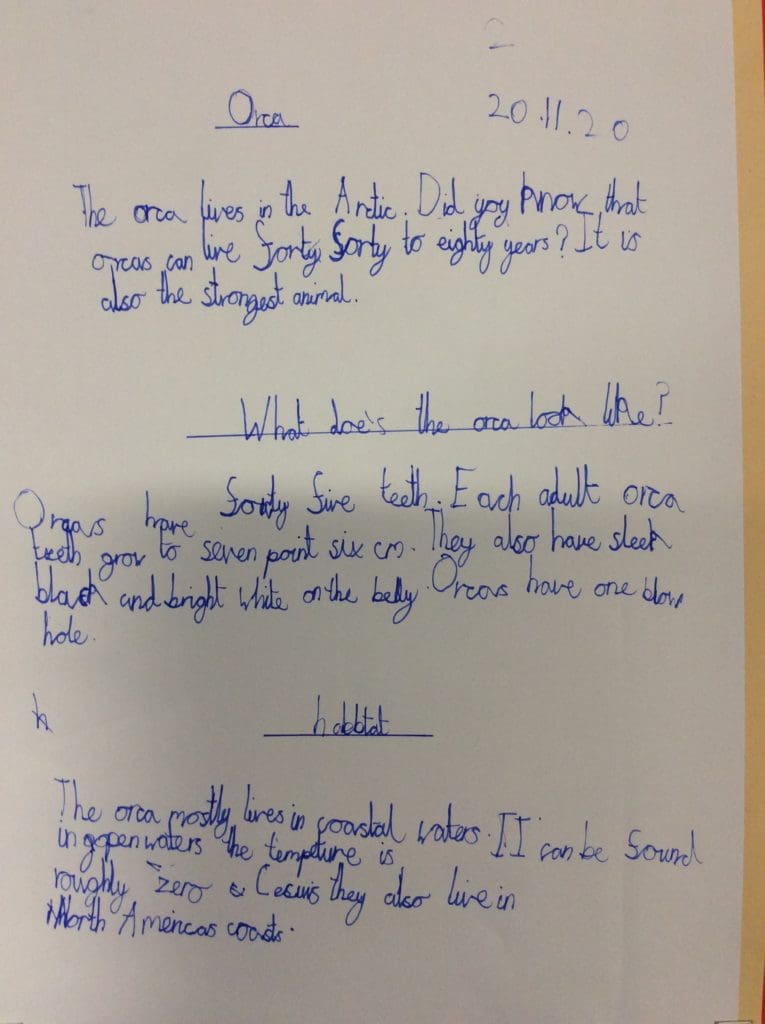 2
Orca
20.11.20
The orca lives in the Arctic. Did you know that
orcas can live forty forty to eighty years? It is
also the strongest animal.
What doe's the orca look like?
Orcas have forty five teeth. Each adult orca
teeth grow to seven point six cm. They also have sleek
black and bright white on the belly. Orcas have one blow
hole.
h
habbtat
The orca mostly lives in coastal waters. It can be found
in open waters the tempture is
roughly zero Cesuis they also live in
North Americas coasts.